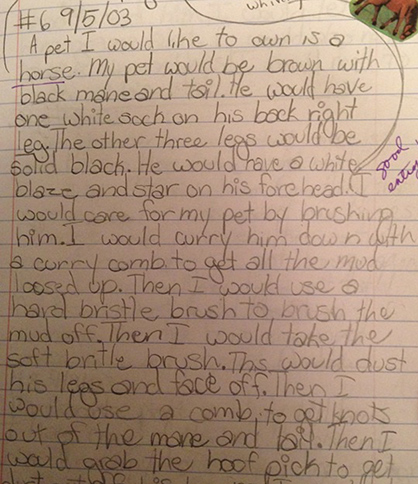 #6 9/5/03
A pet I would like to own is a
horse. My pet would be brown with
black mane and tail. He would have
one white soch on his back right
leg. The other three legs would be
solid black. He would have a white
blaze and star on his forehead. I
would care for my pet by brushing
him. I would curry him down with
a curry comb to get all the mud
loosed up. Then I would use a
hard bristle brush to brush the
mud off. Then I would take the
soft britle brush. Ths would dust
his legs and face off. Then I
would use a comb to get knots
out of the mane and tail. Then I
would grab the hoof pick to get
good